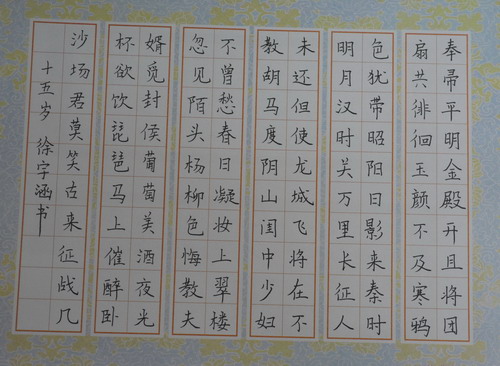 奉帚平明金殿开且将团
扇共徘徊玉颜不及寒鸦
色犹带昭阳日影来秦时
明月汉时关万里长征人
未还但使龙城飞将在不
教胡马度阴山闺中少妇
不曾愁春日凝妆上翠楼
忽见陌头杨柳色悔教夫
婿觅封侯葡萄美酒夜光
杯欲饮琵琶马上催醉卧
沙场君莫笑古来征战几
十五岁 徐字涵书